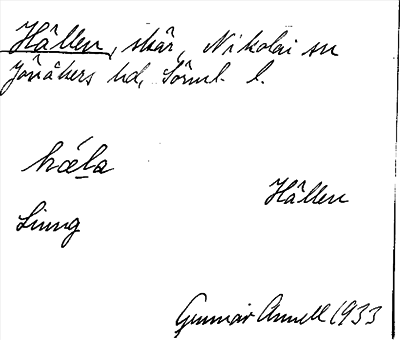 Hållen, skär, Nikolai sn
Jönåkers hd, Sörml. l.
hǻla
Hållen
Ljung
Gunnar Annell 1933